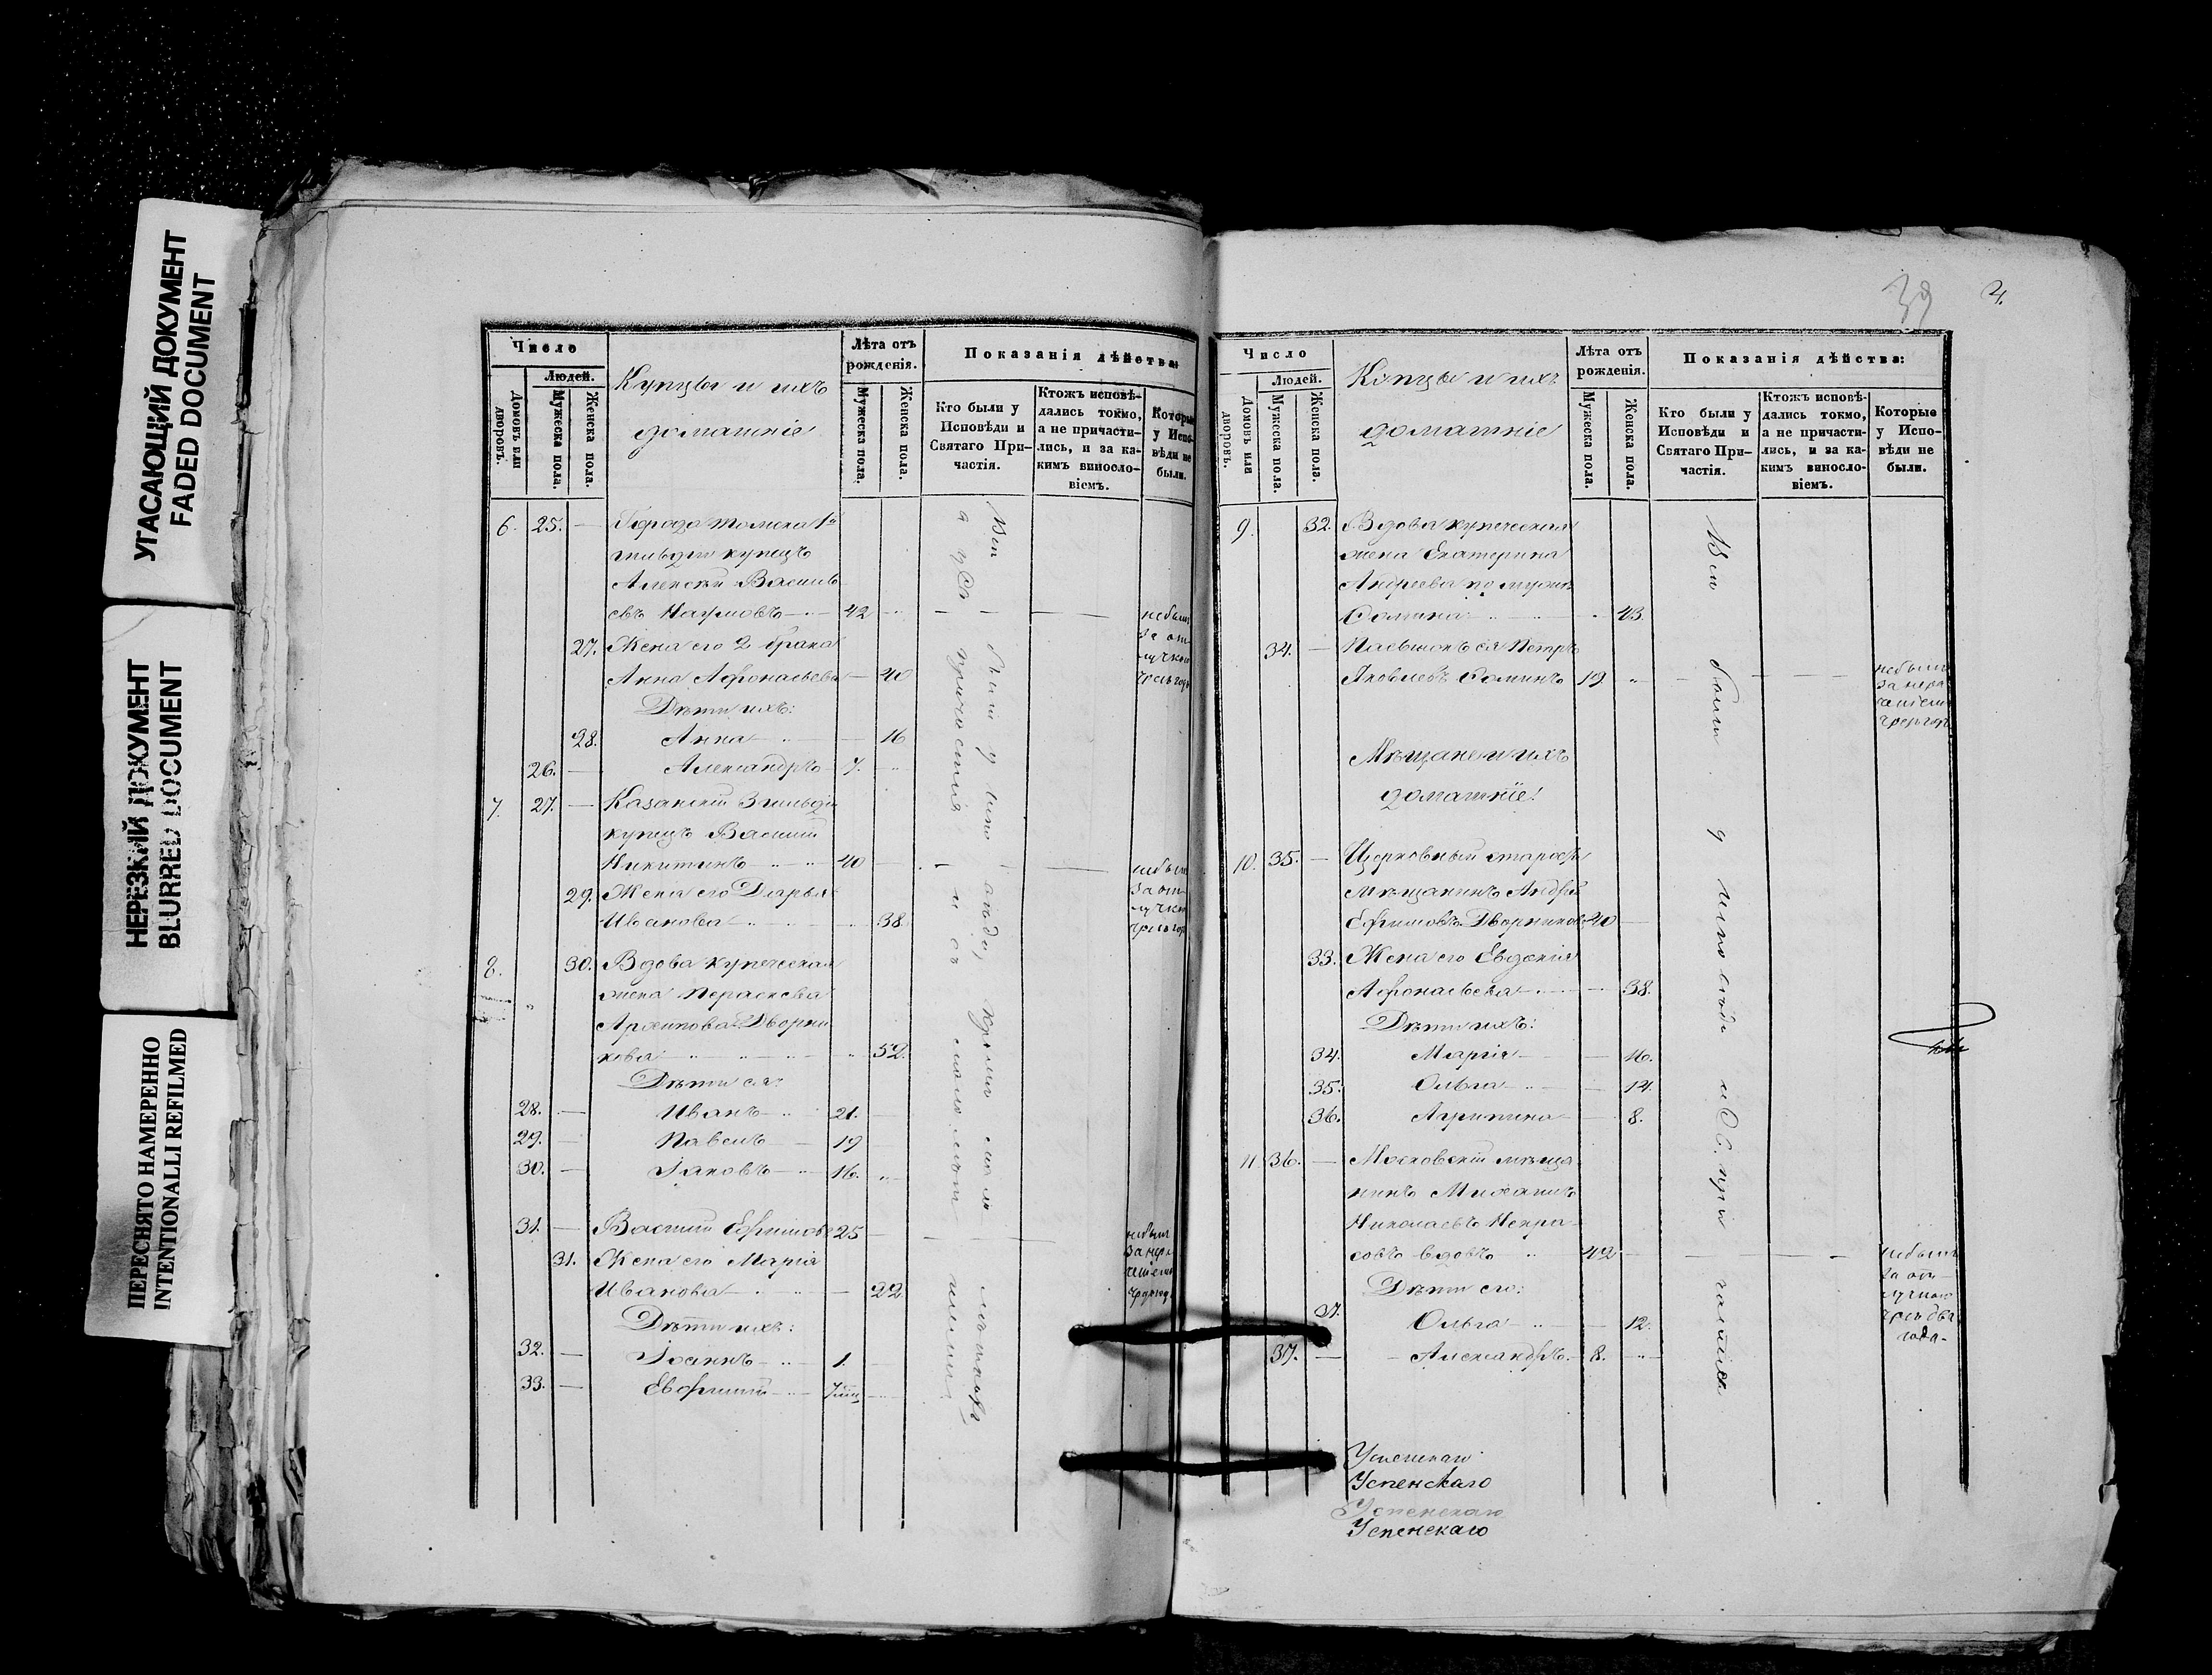 УГАСАЮЩИЙ ДОКУМЕНТ
FADED DOCUMENT
НЕРЕЗКИЙ ДОКУМЕНТ
BLURRED DOCUMENT
ПЕРЕСНЯТО НАМЕРЕННО
INTENTIONALLI REFILMED
Число
Людей.
Домовъ или дворовъ.
Мужеска пола.
Женска пола.
Купцы и ихъ
домашніе
Лѣта отъ рожденія.
Мужеска пола.
Женска пола.
Показанія дѣйства:
Кто были у Исповѣди и Святаго При-
частія.
Ктожъ исповѣ-
дались токмо,
а не причасти-
лись, и за ка-
кимъ винosло-
віемъ.
Которые
у Испо-
вѣди не
были.
6. 25. — Города Томска 1й
гильдіи купецъ
Алексѣй Василь
евъ Наумовъ 42 небылъ
27. Жена его 2 брака за от-
лучкою
Анна Афонасьева — 40
Дѣти ихъ:
28. Анна — 16
26. — Александръ 7.
7. 27. — Казанскій 3 гильдіи
купецъ Василій
Никитинъ 40 небылъ
29. Жена его Дарья за от-
лучкою
Иванова 38.
8. 30. Вдова купеческая
жена Параскева
Архипова Дворни
кова 52.
Дѣти ея:
28. — Иванъ 21.
29. — Павелъ 19
30. — Іаковъ 16.
31. — Василій Ефимовъ 25 небылъ
31. Жена его Марія
Иванова — 22
Дѣти ихъ:
32. — Іоаннъ 1.
33. — Евфимій
39 4.
Число
Людей.
Домовъ или дворовъ.
Мужеска пола.
Женска пола.
Купцы и ихъ
домашніе
Лѣта отъ рожденія.
Мужеска пола.
Женска пола.
Показанія дѣйства:
Кто были у
Исповѣди и
Святаго При-
частія.
Ктожъ исповѣ-
дались токмо,
а не причасти-
лись, и за ка-
кимъ винosло-
віемъ.
Которые
у Испо-
вѣди не
были.
9. 32. Вдова купеческая
жена Екатерина
Андреева по мужѣ
Сомина 43.
34. — Пасынокъ ея Петръ
Яковлевъ Соминъ 19 небылъ
Мѣщане и ихъ
домашніе:
10. 35. — Церковный староста
мѣщанинъ Андрей
Ефимовъ Дворников 40
33. Жена его Евдокія
Афонасьева 38.
Дѣти ихъ:
34. Марія — 16.
35. Ольга — 14.
36. Агрипина — 8.
11 36. — Московскій мѣща
нинъ Михаилъ
Николаевъ Некра
совъ вдовъ 42 небылъ
за от-
лучкою
Дѣти его:
37. Ольга — 12. чрезъ два
года.
37. — Александръ. 8.
Успенскаго
Успенскаго
Успенскаго
Успенскаго